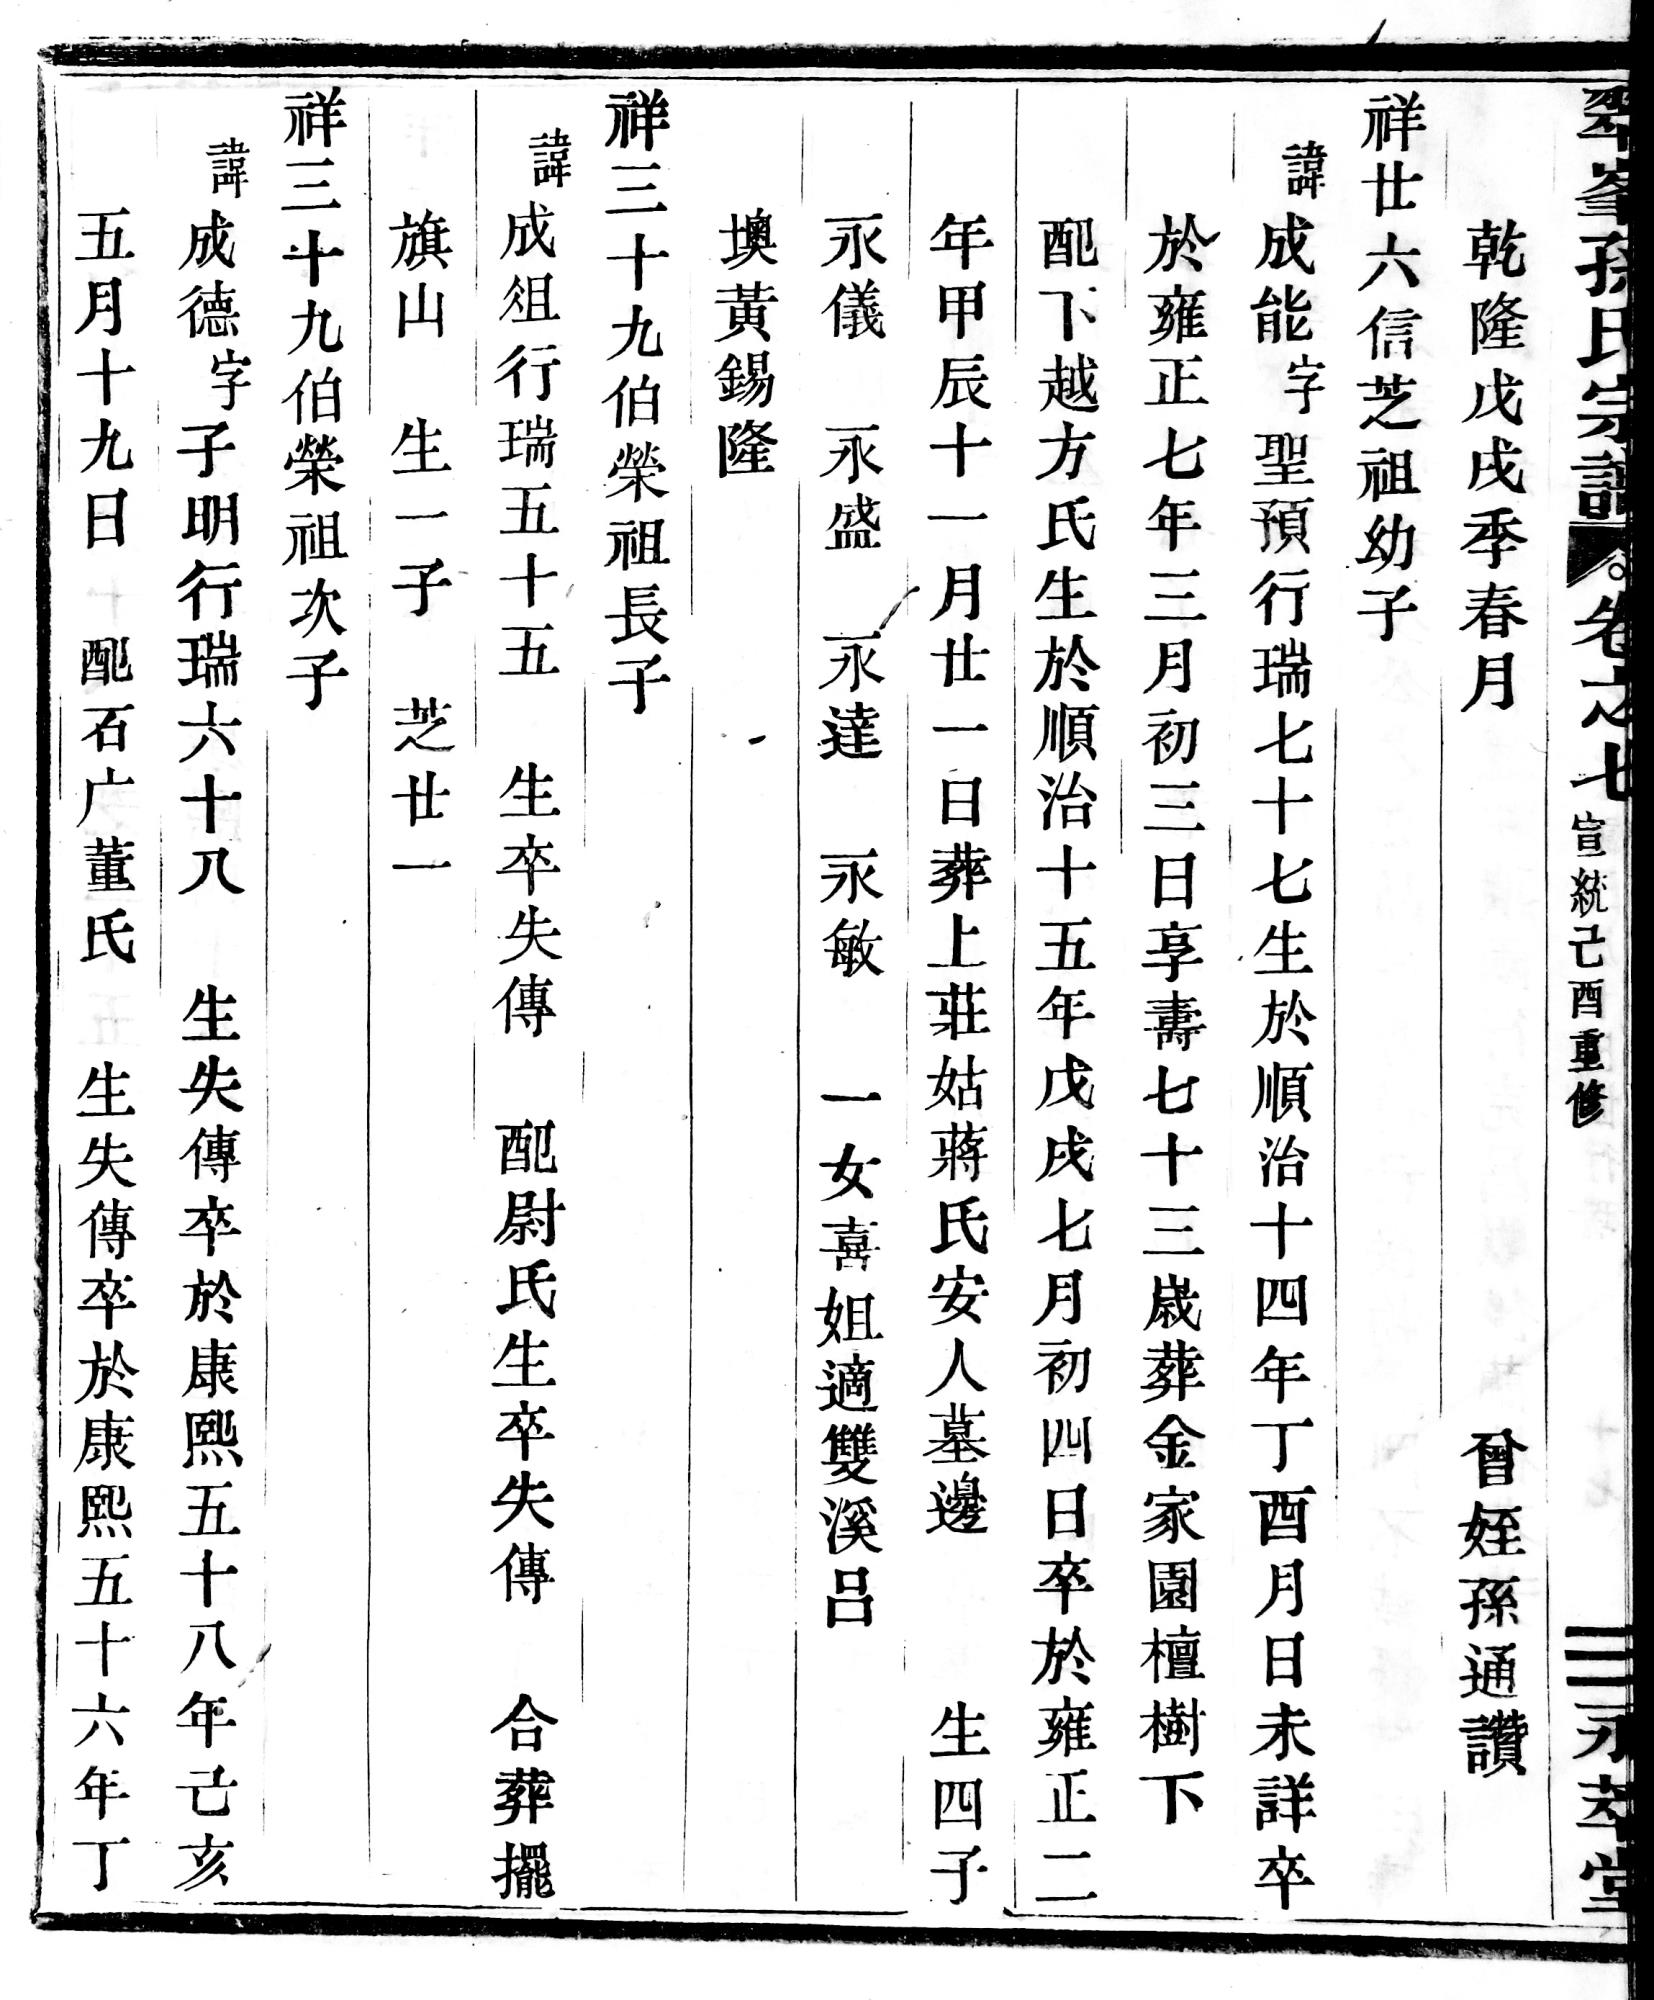 翠峯孫氏宗譜 卷之七 宣統己酉重修 三 永萃堂
乾隆戊戌季春月 曾姪孫通讚
祥廿六信芝祖幼子
諱成能字聖預行瑞七十七生於順治十四年丁酉月日未詳卒
於雍正七年三月初三日享壽七十三歲葬金家園檀樹下
配下越方氏生於順治十五年戊戌七月初四日卒於雍正二
年甲辰十一月廿一日葬上莊姑蔣氏安人墓邊 生四子
永儀 永盛 永達 永敏 一女喜姐適雙溪呂
墺黃錫隆
祥三十九伯榮祖長子
諱成俎行瑞五十五 生卒失傳 配尉氏生卒失傳 合葬擺
旗山 生一子 芝廿一
祥三十九伯榮祖次子
諱成德字子明行瑞六十八 生失傳卒於康熙五十八年己亥
五月十九日 配石广董氏 生失傳卒於康熙五十六年丁